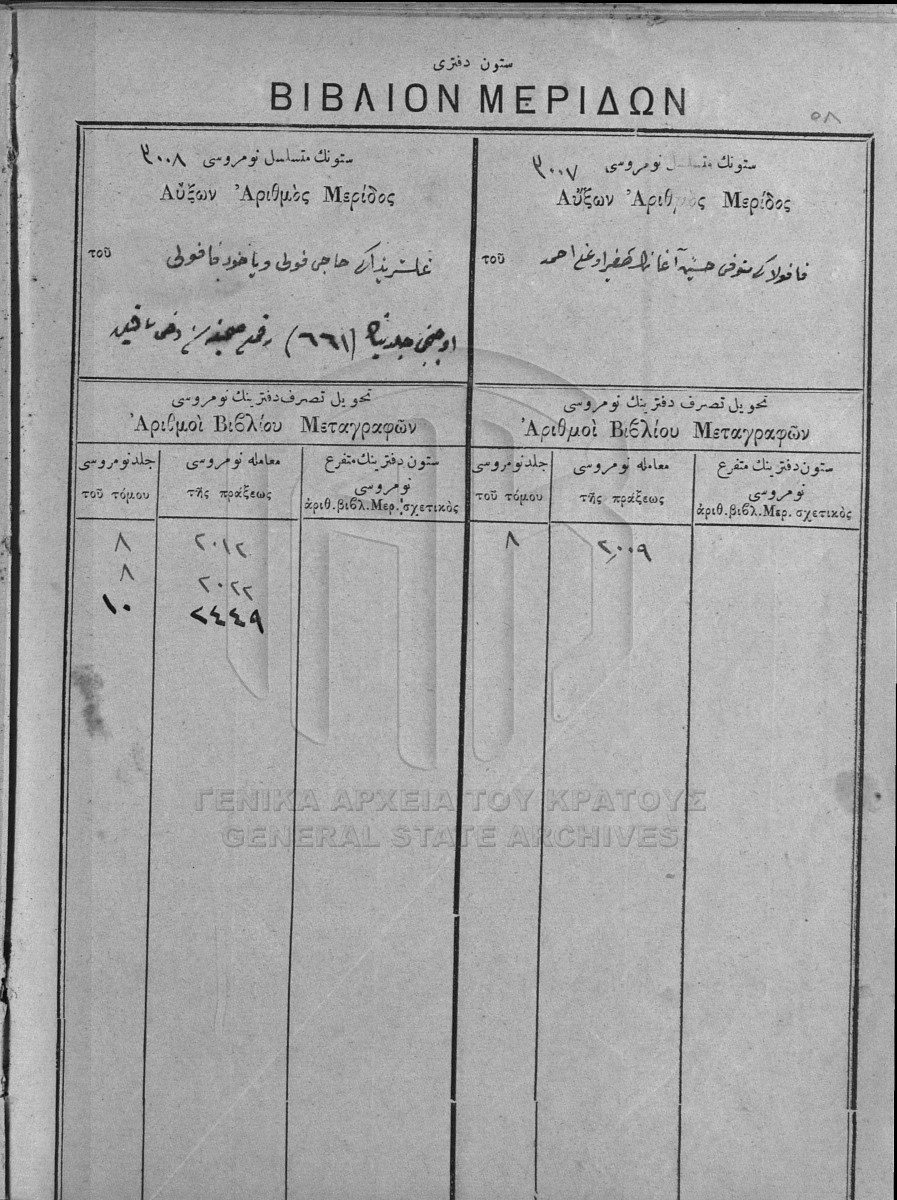 ستون دفتری
ΒΙΒΛΙΟΝ ΜΕΡΙΔΩΝ
٥٨
ستونك متسلسل نومروسی ٣٠٠٧
Αὔξων Ἀριθμὸς Μερίδος
τοῦ
متوفی حسین آغا احمد
تحویل تصرف دفترینك نومروسی
Ἀριθμοὶ Βιβλίου Μεταγραφῶν
ستون دفترینك متفرع نومروسی
ἀριθ. βιβλ. Μερ. σχετικὸς
معامله نومروسی
τῆς πράξεως
جلد نومروسی
τοῦ τόμου
٢٠٠٩
٨
ستونك متسلسل نومروسی ٣٠٠٨
Αὔξων Ἀριθμὸς Μερίδος
τοῦ
حاجی قولی ویاخود قاقولی
(٦٦١)
تحویل تصرف دفترینك نومروسی
Ἀριθμοὶ Βιβλίου Μεταγραφῶν
ستون دفترینك متفرع نومروسی
ἀριθ. βιβλ. Μερ. σχετικὸς
معامله نومروسی
τῆς πράξεως
جلد نومروسی
τοῦ τόμου
٢٠١٢
٨
٢٠٢٢
٨
٢٤٤٩
١٠
ΓΕΝΙΚΑ ΑΡΧΕΙΑ ΤΟΥ ΚΡΑΤΟΥΣ
GENERAL STATE ARCHIVES